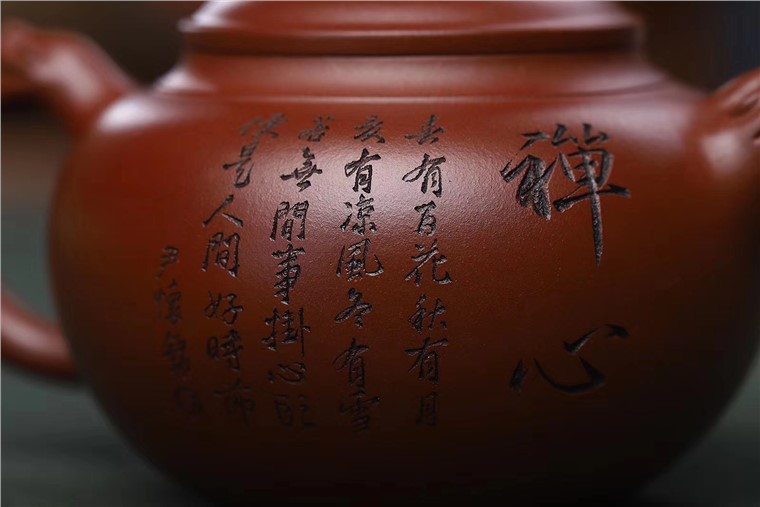 禅心
春有百花秋有月
夏有凉風冬有雪
若無閒事掛心頭
便是人間好時節
尹懐